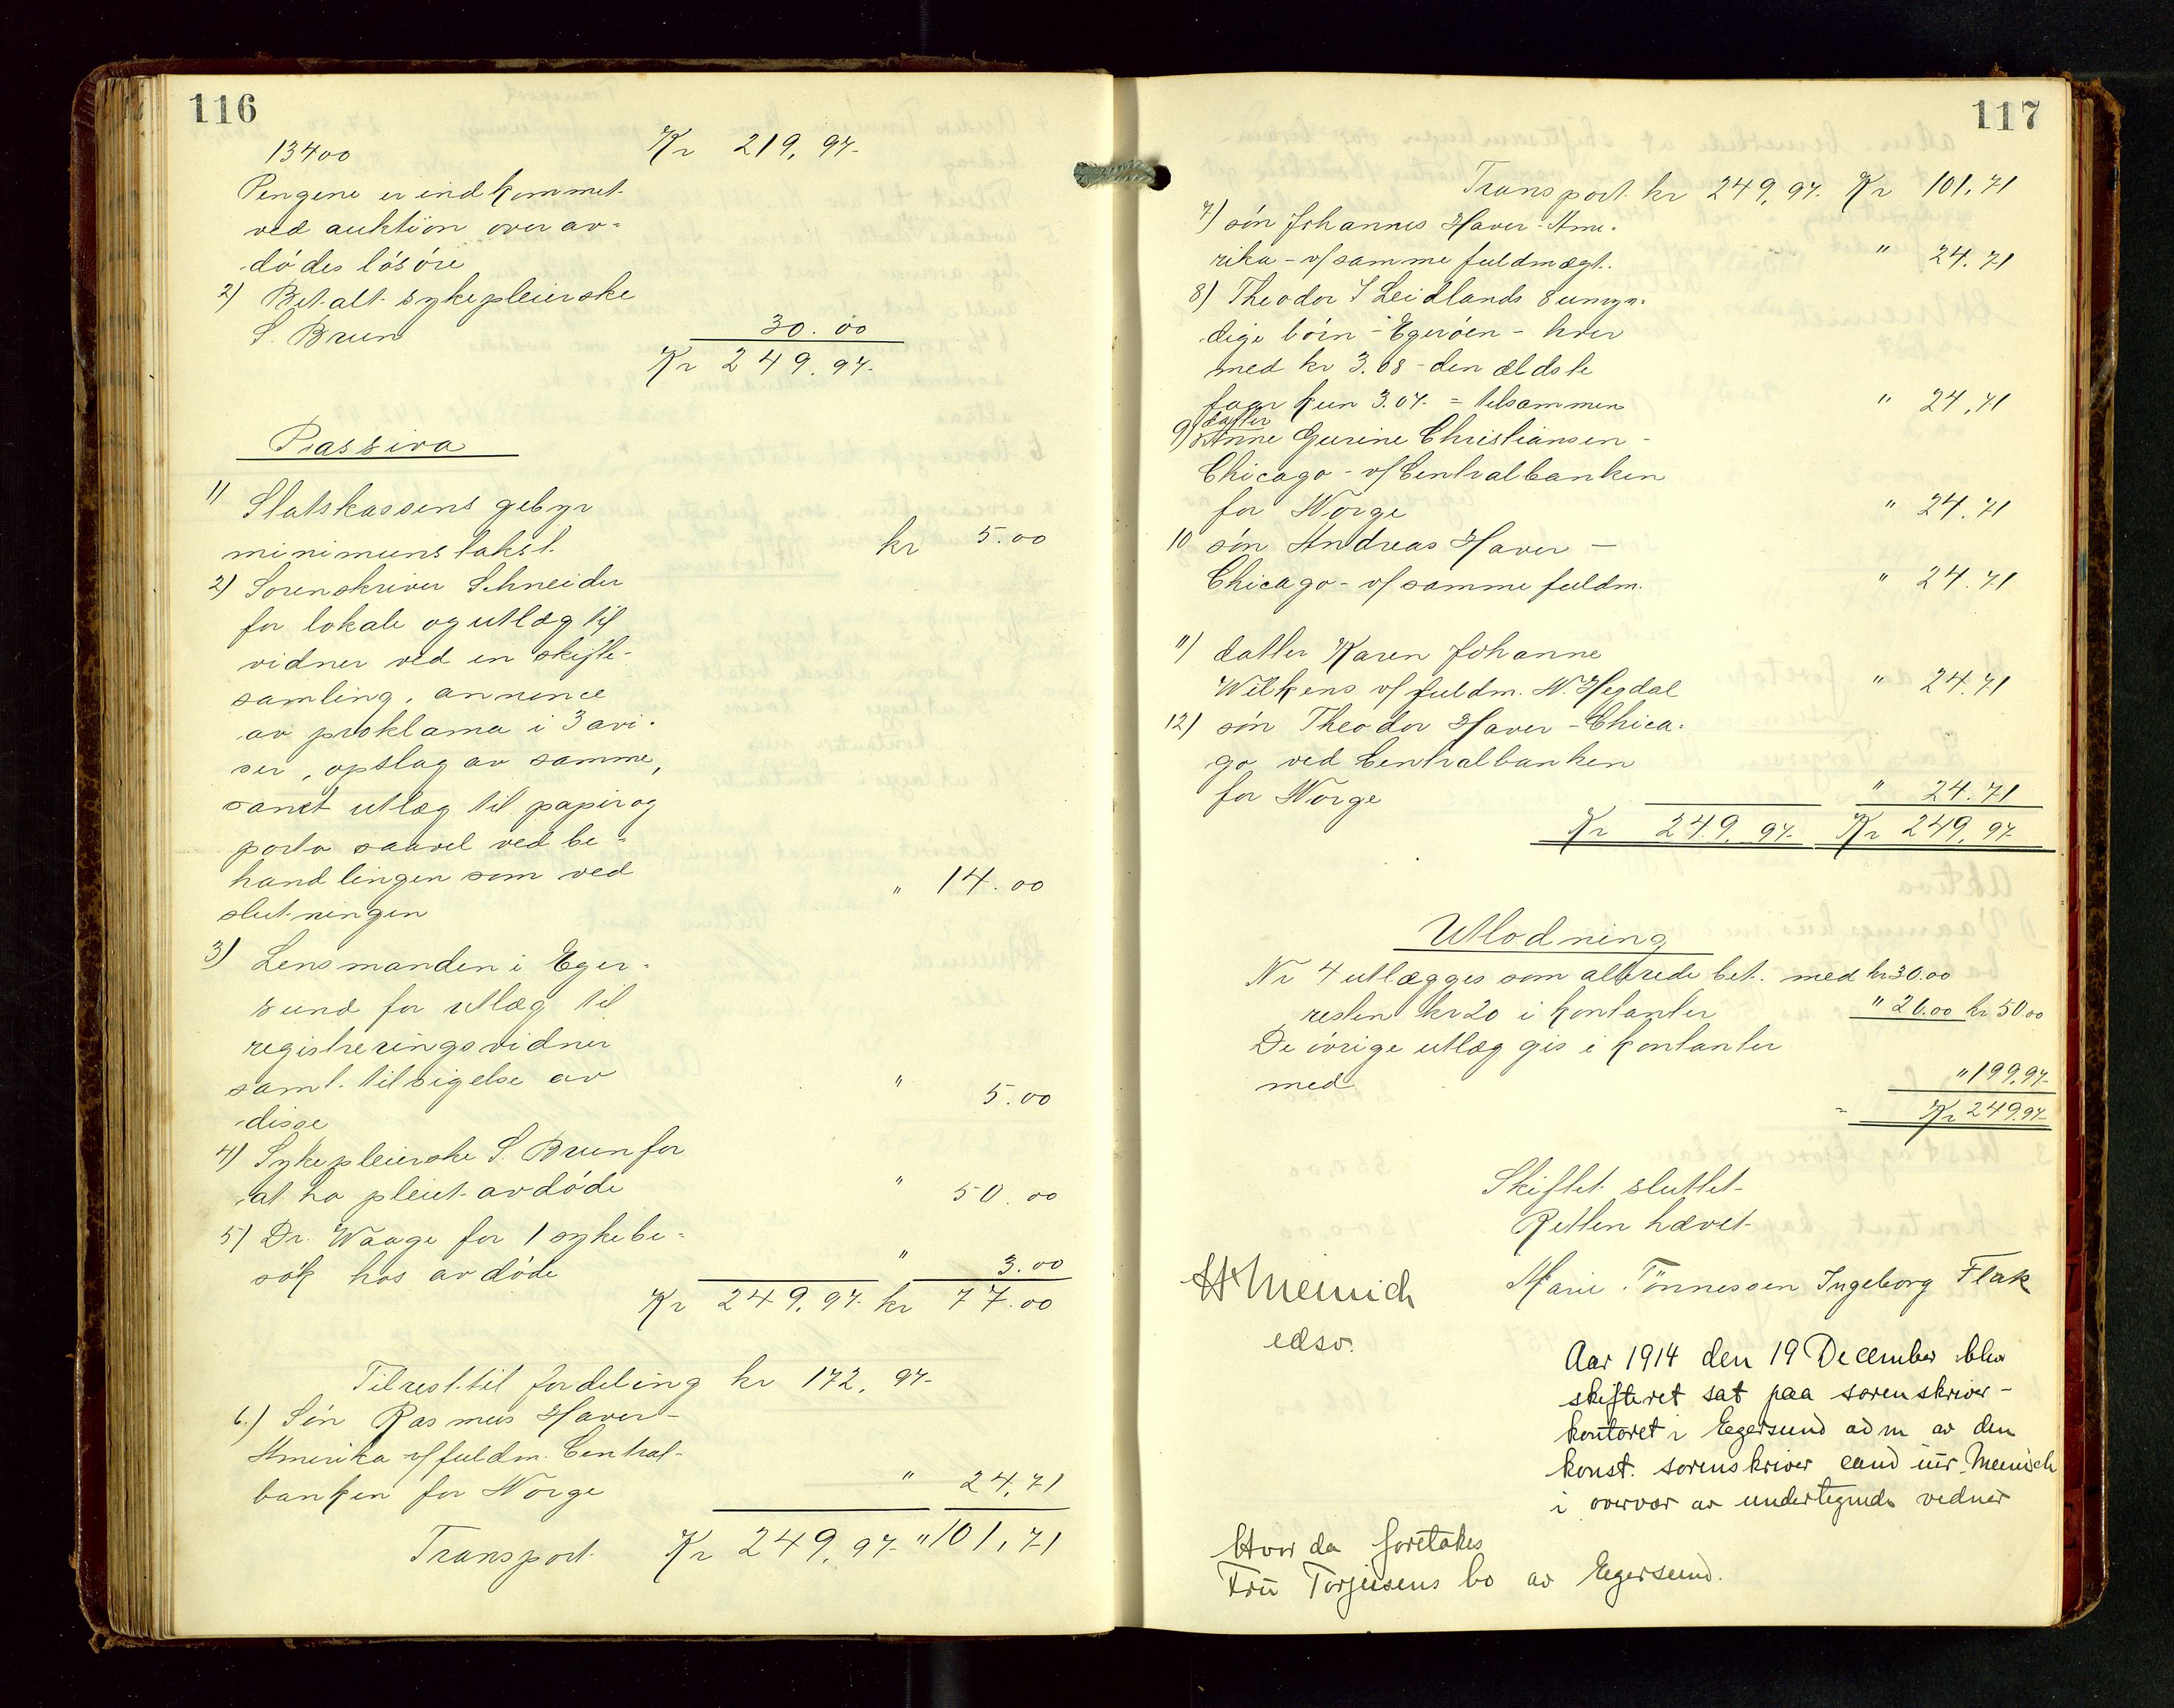 116
13400 Kr 219,97
Pengene er indkommet
ved auktion over av=
dødes løsøre
2) Betalt sykepleierske
S. Bruun 30.00
Kr 249.97
Passiva
1) Statskassens gebyr
minimumstakst. kr 5.00
2) Sorenskriver Schneider
for lokale og utlæg til
vidner ved en skifte-
samling, annonce
av proklama i 3 avi-
ser, opslag av samme,
samt utlæg til papir og
porto saavel ved be=
handlingen som ved " 14.00
slutningen
3) Lensmanden i Eger=
sund for utlæg til
registreringsvidner
samt tilsigelse av " 5.00
disse
4) Sykepleierske S. Bruun for
at ha pleiet avdøde " 50.00
5) Dr. Waage for 1 sykebe=
søk hos avdøde " 3.00
Kr 249,97 kr 77.00
Tilrest til fordeling kr 172,97
6.) Søn Rasmus Haver-
Amerika v/ fuldm. Central-
banken for Norge " 24,71
Transport Kr 249,97 " 101,71
117
Transport kr 249,97 Kr 101,71
7) søn Johannes Haver - Ame-
rika - v/ samme fuldmægt. " 24.71
8) Theodor T Leidlands 8 umyn-
dige børn - Egerøen - hver
med kr 3.08 - den ældste
faar kun 3.07 = tilsammen " 24,71
datter
9) Anne Gurine Christiansen -
Chicago - v/ Centralbanken
for Norge " 24.71
10 søn Andreas Haver -
Chicago - v/ samme fuldm. " 24.71
11) datter Karen Johanne
Wilkens v/ fuldm. N. Hegdal " 24.71
12) søn Theodor Haver - Chica-
go ved Centralbanken
for Norge " 24.71
Kr 249.97 Kr 249,97
Utlodning
Nr 4 utlægges som allerede bet. med kr 30.00
resten kr 20 i kontanter " 20.00 kr 50.00
De øvrige utlæg gis i kontanter
med " 199,97
= Kr 249.97
Skiftet sluttet
Retten hævet
Meinich Marie Tønnessen Ingeborg Flak
edsv.
Aar 1914 den 19 December blev
skifteret sat paa sorenskriver-
kontoret i Egersund adm av den
konst. sorenskriver cand jur. Meinich
i overvær av undertegnede vidner
Hvor da foretokes
Fru Torjusens bo av Egersund.